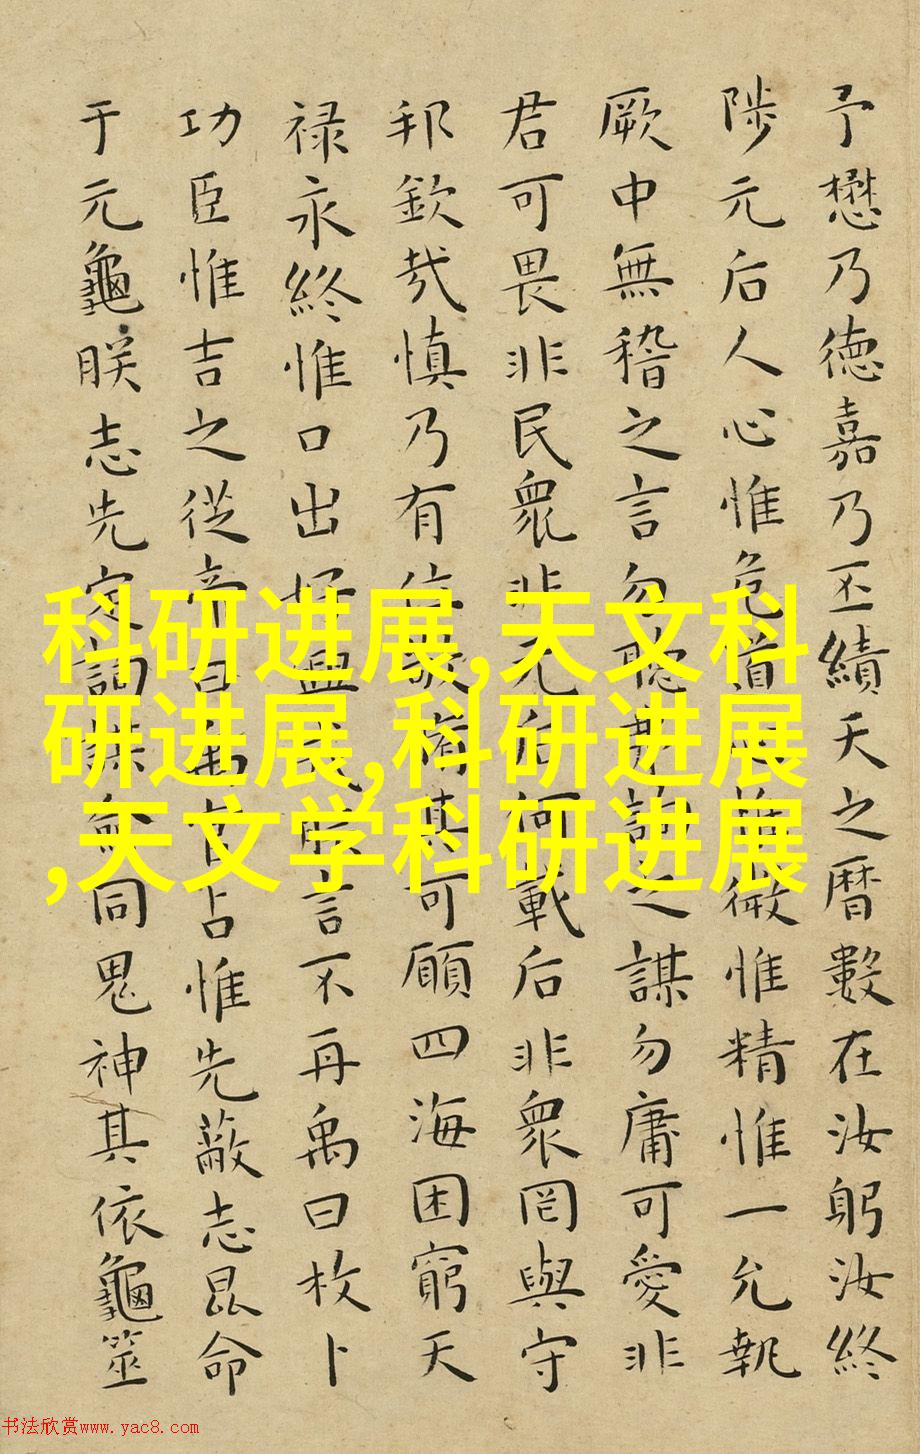 予懋乃德嘉乃丕績天之曆數在汝躬汝終
陟元后人心惟危道心惟微惟精惟一允執
厥中無稽之言勿聽弗詢之謀勿庸可愛非
君可畏非民衆非元后何載后非衆罔與守
邦欽哉慎乃有位敬脩其可願四海困窮天
禄永終惟口出好興戎朕言不再禹曰枚卜
功臣惟吉之從帝曰禹官占惟先蔽志昆命
于元龜朕志先定詢謀僉同鬼神其依龜筮
科研进展,天文科
研进展,科研进展
,天文学科研进展
书法欣赏www.yac8.com